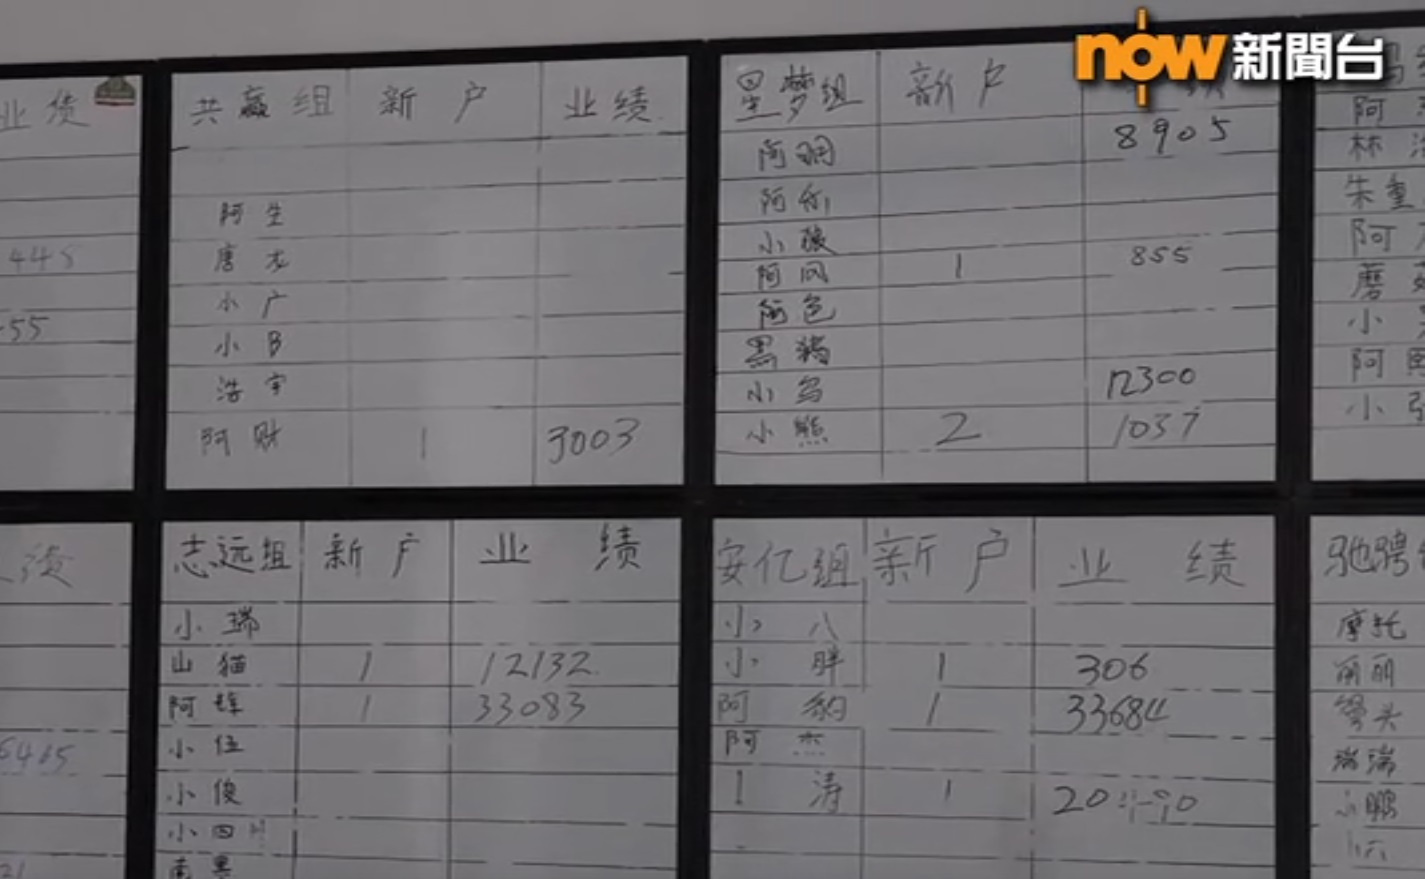 now 新聞台
业债
448
55
共赢组 新户 业绩
阿生
唐龙
小广
小B
浩宇
阿财 1 3003
星梦组 新户
阿明 8905
阿彪
小狼
阿风 1 855
阿色
黑猪
小鸟 12300
小熊 2 1037
阿
林
朱重
阿
蘑菇
小
阿
小
绩
6465
21
志远组 新户 业绩
小瑞
山猫 1 12132
阿辉 1 33083
小伍
小俊
小四川
南景
安亿组 新户 业绩
小八
小胖 1 306
阿豹 1 33684
阿杰
涛 1 20490
驰骋
摩托
丽丽
馒头
瑞瑞
小鹏
小六